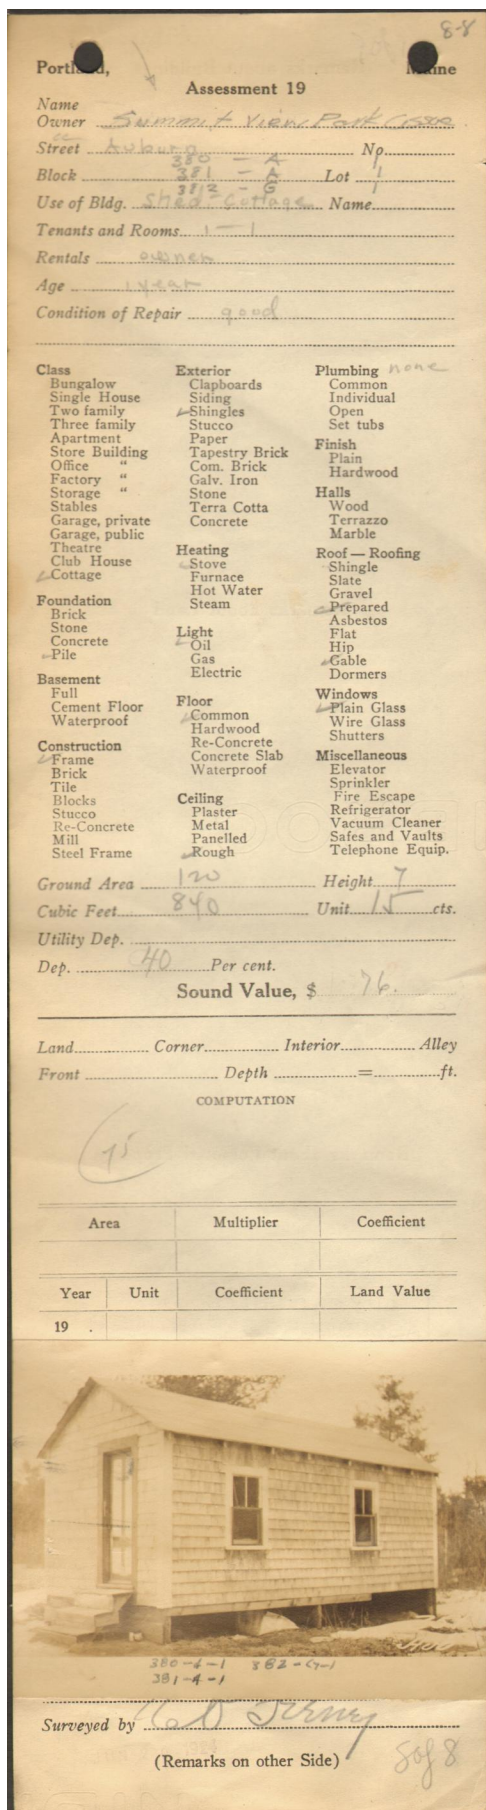 8-8
Portland, Maine
Assessment 19
Name
Owner Summit View Park
Street Auburn No.
380 - A 1
Block 381 - A Lot 1
382 - G 1
Use of Bldg. Shed-Cottage Name
Tenants and Rooms 1 - 1
Rentals owner
Age 1 year
Condition of Repair good
Class
Bungalow
Single House
Two family
Three family
Apartment
Store Building
Office "
Factory "
Storage "
Stables
Garage, private
Garage, public
Theatre
Club House
Cottage
Foundation
Brick
Stone
Concrete
Pile
Basement
Full
Cement Floor
Waterproof
Construction
Frame
Brick
Tile
Blocks
Stucco
Re-Concrete
Mill
Steel Frame
Exterior
Clapboards
Siding
Shingles
Stucco
Paper
Tapestry Brick
Com. Brick
Galv. Iron
Stone
Terra Cotta
Concrete
Heating
Stove
Furnace
Hot Water
Steam
Light
Oil
Gas
Electric
Floor
Common
Hardwood
Re-Concrete
Concrete Slab
Waterproof
Ceiling
Plaster
Metal
Panelled
Rough
Plumbing none
Common
Individual
Open
Set tubs
Finish
Plain
Hardwood
Halls
Wood
Terrazzo
Marble
Roof — Roofing
Shingle
Slate
Gravel
Prepared
Asbestos
Flat
Hip
Gable
Dormers
Windows
Plain Glass
Wire Glass
Shutters
Miscellaneous
Elevator
Sprinkler
Fire Escape
Refrigerator
Vacuum Cleaner
Safes and Vaults
Telephone Equip.
Ground Area 120 Height 7
Cubic Feet 840 Unit 15 cts.
Utility Dep.
Dep. 40 Per cent.
Sound Value, $ 76.
Land Corner Interior Alley
Front Depth = ft.
COMPUTATION
75
Area Multiplier Coefficient
Year Unit Coefficient Land Value
19 .
380-A-1 382-G-1
381-A-1
Surveyed by
(Remarks on other Side)
8 of 8